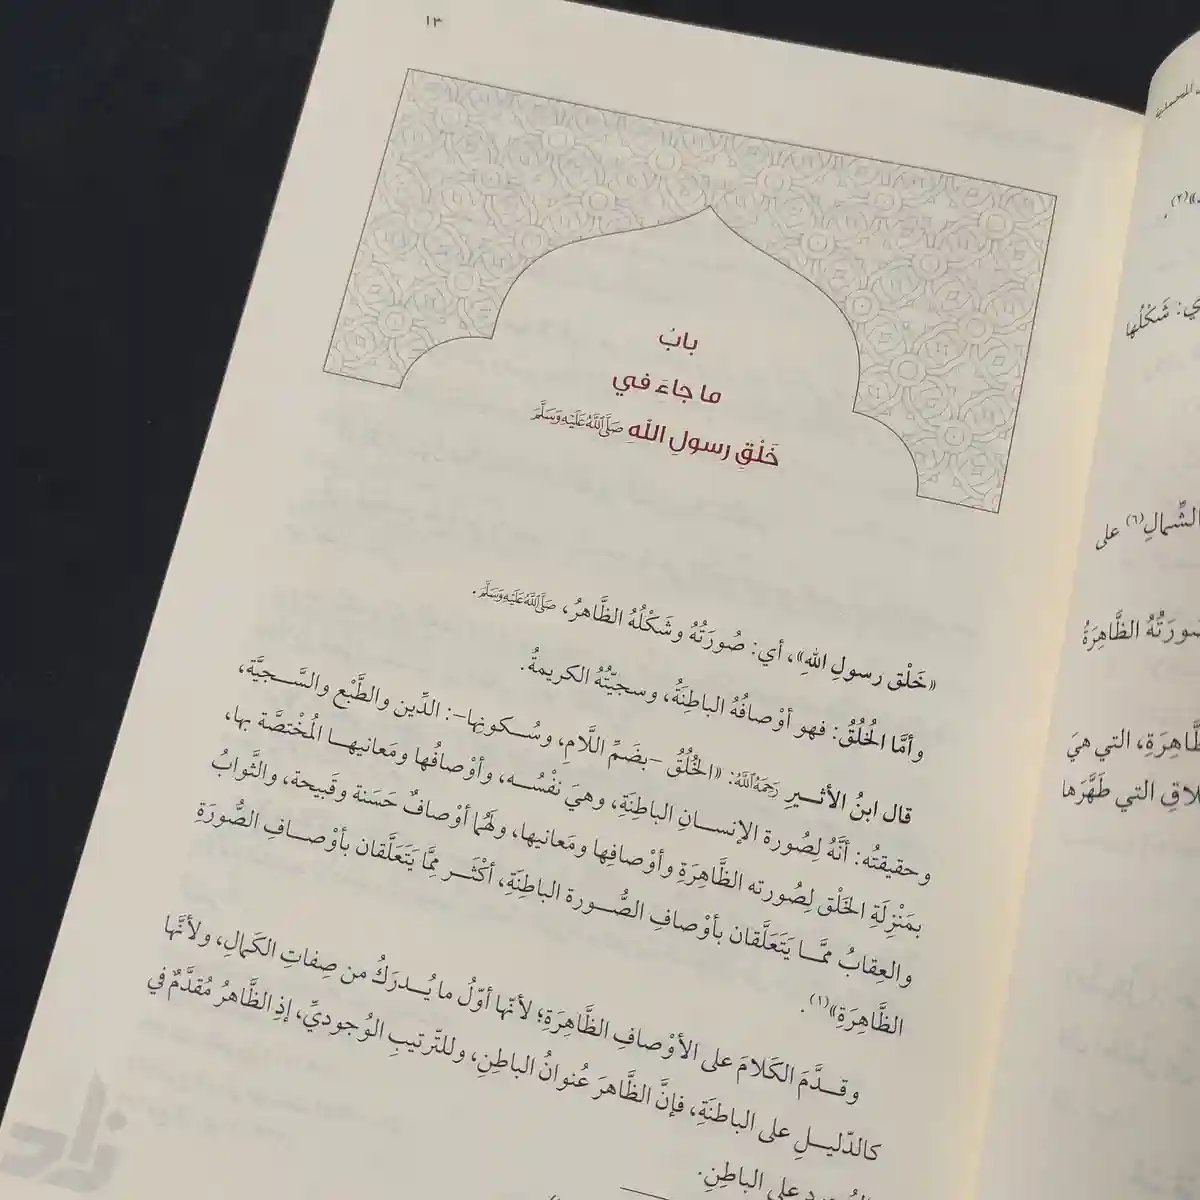 ١٣
بابُ
ما جاءَ في
خَلْقِ رسولِ اللهِ صَلَّى اللَّهُ عَلَيْهِ وَسَلَّمَ
«خَلْق رسولِ اللهِ»، أي: صُورَتُهُ وشَكْلُهُ الظَّاهرُ، صَلَّى اللَّهُ عَلَيْهِ وَسَلَّمَ.
وأمَّا الخُلُقُ: فهو أوْصافُهُ الباطِنَةُ، وسجيَّتُهُ الكريمةُ.
قال ابنُ الأثيرِ رَحِمَهُ اللَّهُ: «الخُلُقُ -بضَمِّ اللَّامِ، وسُكونِها-: الدِّين والطَّبْع والسَّجيَّة،
وحقيقتُه: أنَّهُ لِصُورة الإنسانِ الباطِنَةِ، وهيَ نفْسُه، وأوْصافُها ومَعانيها المُخْتصَّة بها،
بمَنْزِلَةِ الخَلْق لِصُورته الظَّاهِرَةِ وأوْصافِها ومَعانيها، ولهُما أوْصافٌ حَسَنة وقَبيحة، والثَّوابُ
والعِقابُ ممَّا يَتَعَلَّقان بأوْصافِ الصُّورة الباطِنَةِ، أكْثَر مِمَّا يَتَعَلَّقان بأوْصافِ الصُّورَةِ
الظَّاهِرَةِ»(١).
وقدَّمَ الكَلامَ على الأوْصافِ الظَّاهِرَةِ؛ لأنّها أوّلُ ما يُدرَكُ من صِفاتِ الكَمالِ، ولأنَّها
كالدّليلِ على الباطنَةِ، فإنَّ الظَّاهرَ عُنوانُ الباطِنِ، وللتّرتيبِ الوُجوديِّ، إذِ الظَّاهرُ مُقدَّمٌ في
على الباطِنِ.
(٢).
ي: شَكْلُها
الشِّمالِ(٦) على
صُورَتُهُ الظَّاهِرَةُ
الظَّاهِرَةِ، التي هيَ
التي طَهَّرَها
زاد